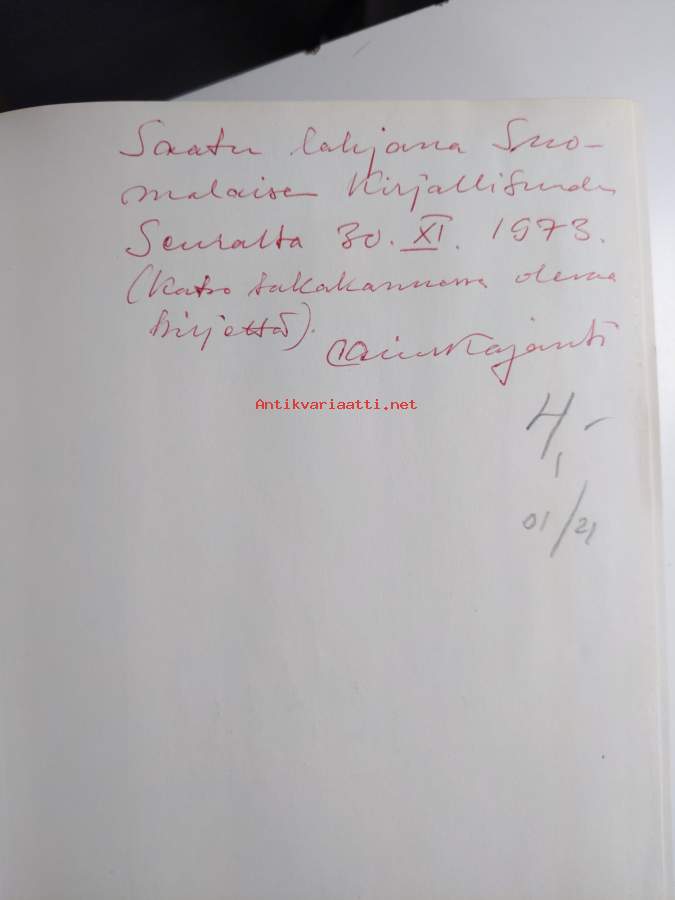 Saatu lahjana Suo-
malaisen Kirjallisuuden
Seuralta 30. XI. 1973.
(Katso takakannessa olevaa
kirjettä).
Kajanti
Antikvariaatti.net
4,-
01/21